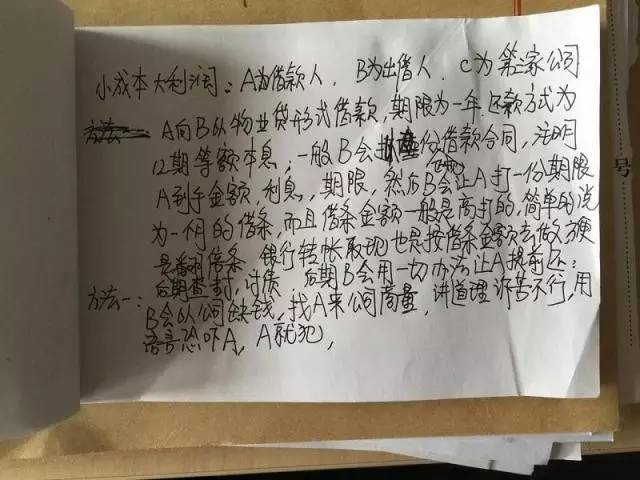 小成本大利润：A为借款人，B为出借人，C为第三家公司
A向B以物业贷形式借款，期限为一年，还款方式为
12期等额本息，一般B会 一份借款合同，注明
A到手金额，利息，期限，然后B会让A打一份期限
为一个月的借条，而且借条金额一般是高打的，简单的说
是翻倍条 银行转帐取现也是按借条金额去做，方便
后期查封，讨债 后期B会用一切办法让A提前还：
方法一：B会以公司缺钱，找A来公司商量，讲道理 不行，用
语言恐吓A，A就犯，
号